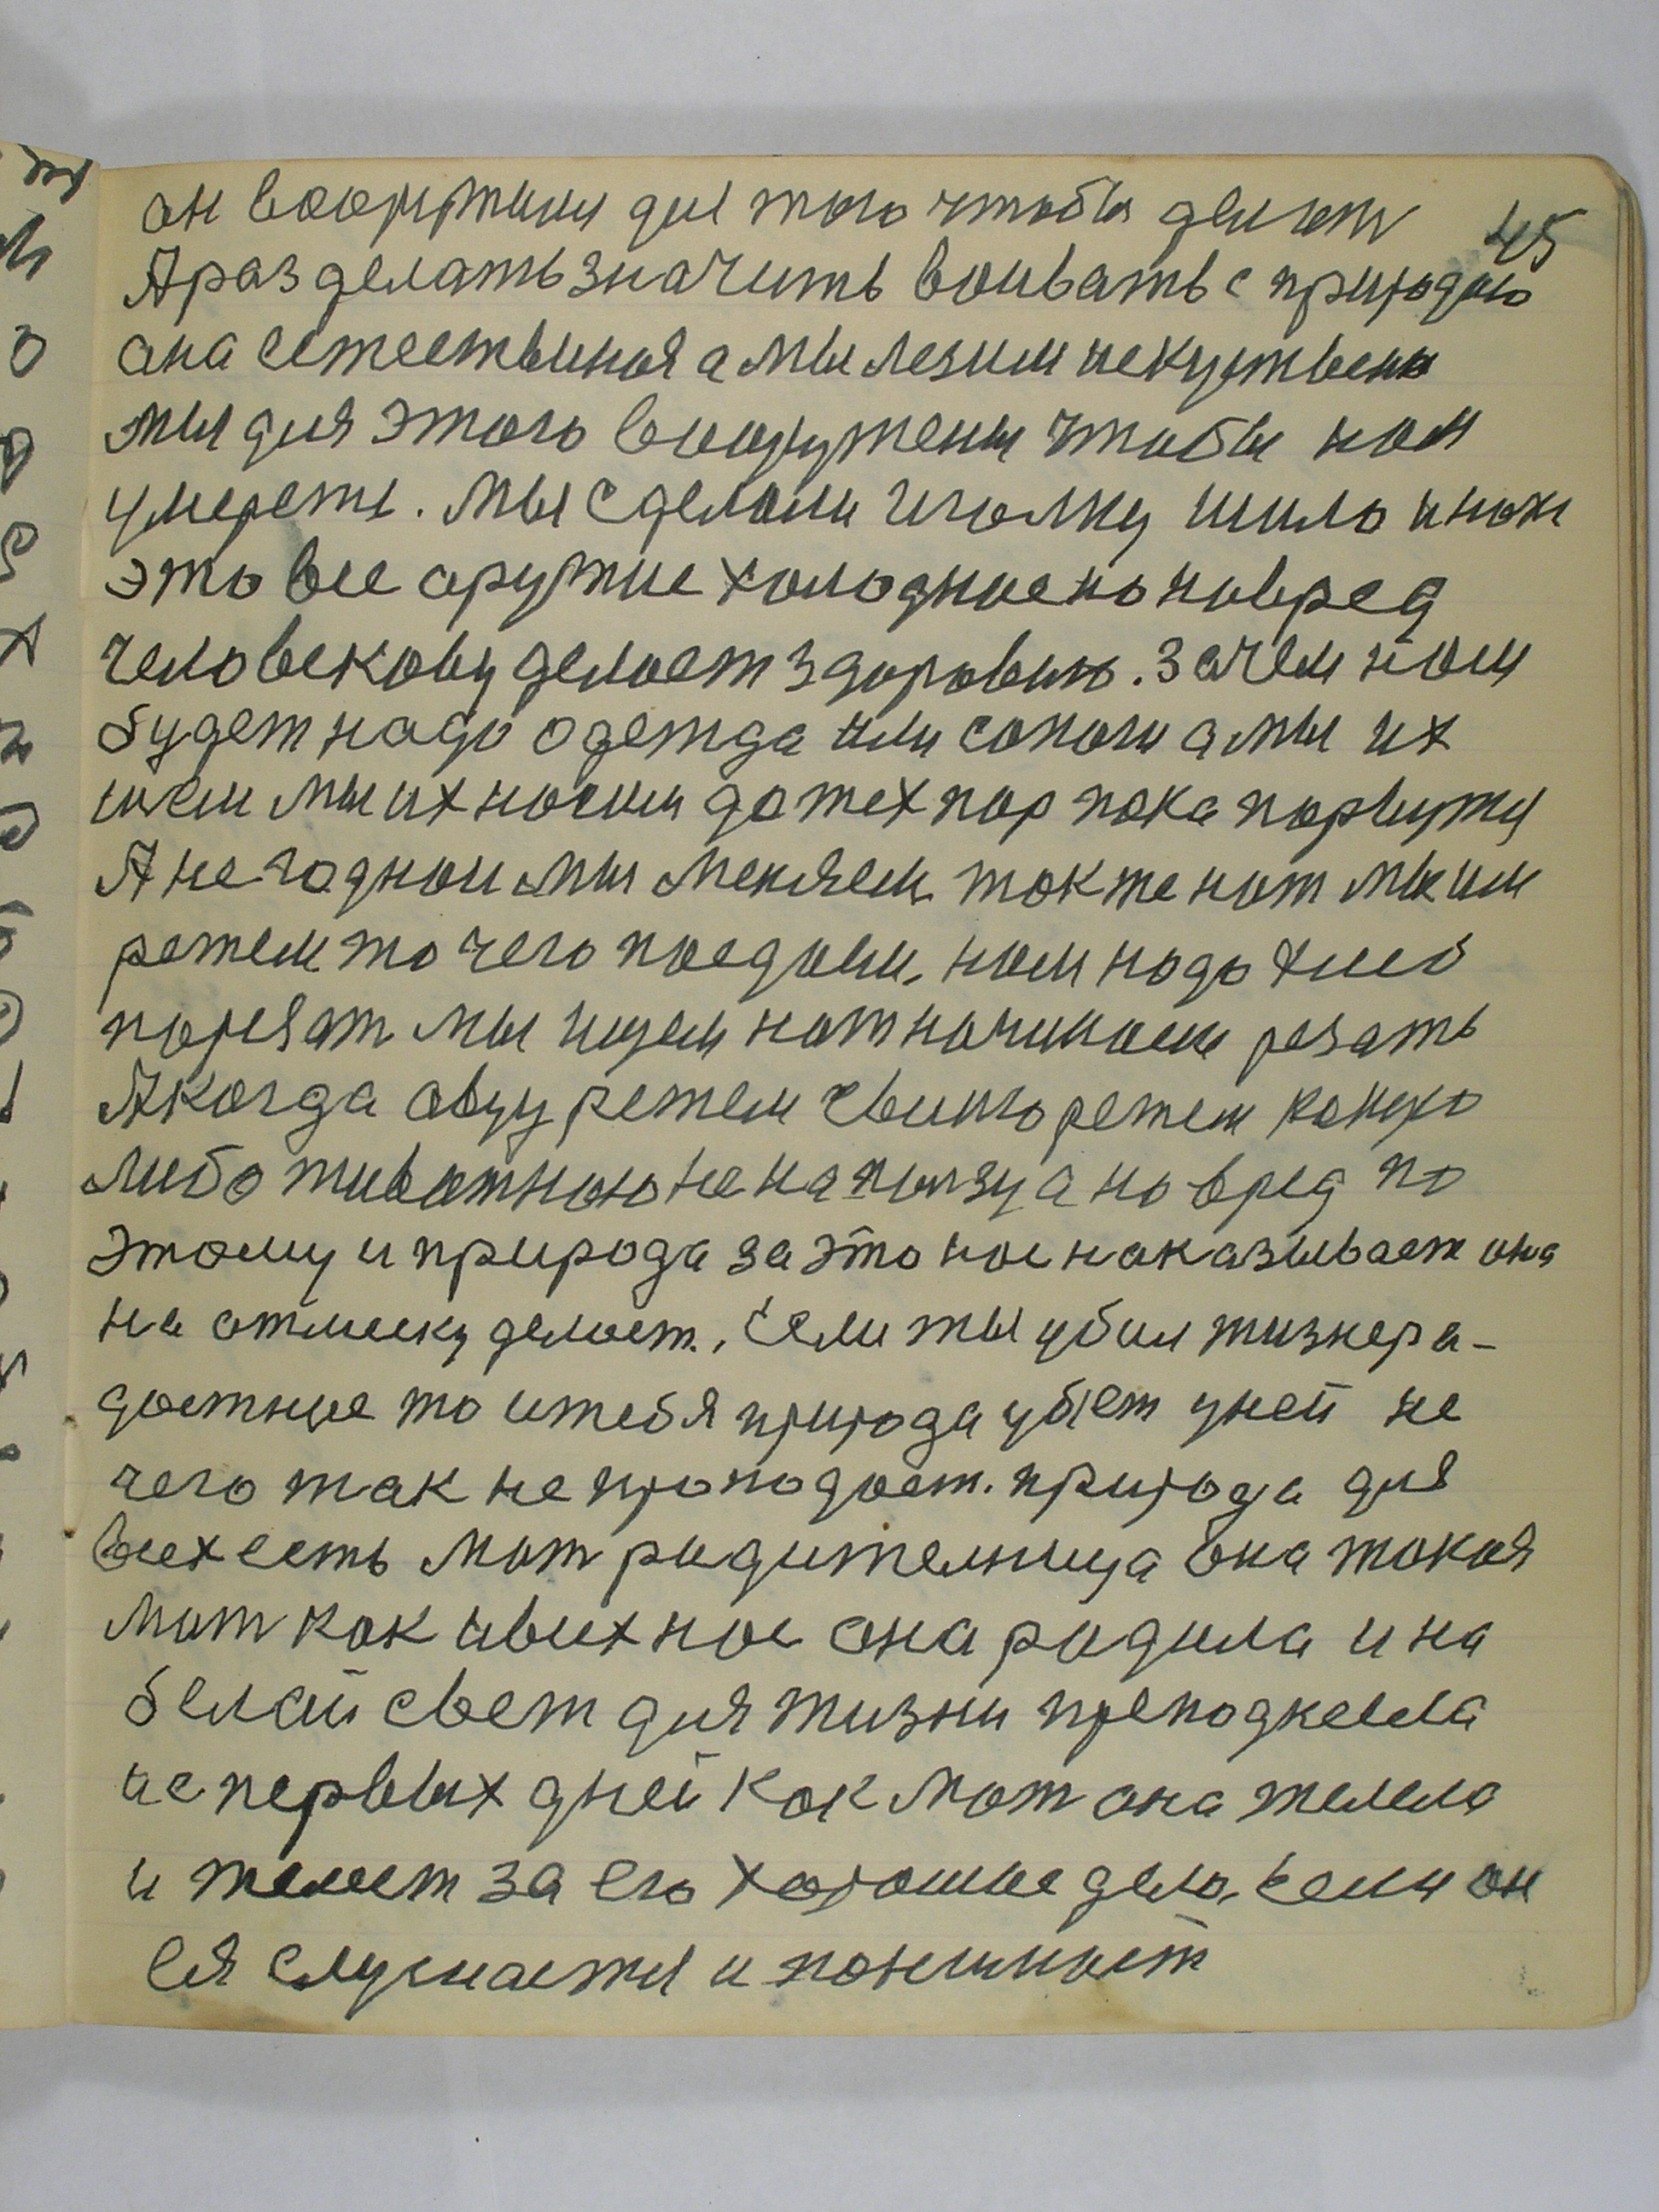 он вооружини для того чтобы делать
45
А раз делать значить воивать с природою
она естествиная а мы лезим искуствено
мы для этого вооружены чтобы нам
умереть. мы сделали иголку шило и нож
это все оружие холодное но на вред
человекову делает здоровию. Зачем нам
будет надо одежда или сапоги а мы их
шем мы их носим до тех пор пока порвутся
А не годнои мы меняем так же нож мы им
режем то чего поедаим, нам надо хлеб
порезат мы ищем нож начинаем резать
А когда овцу режем свиню режем какую
либо животною не на ползу а на вред по
этому и природа за это нас наказывает она
на отмеску делает. Если ты убил жизнера-
достное то и тебя природа убет у ней не
чего так не пропадает. природа для
всех есть мат радителница она такая
мат как и всих нас она радила и на
белай свет для жизни преподнесла
и с первых дней как мат она желела
и желеет за его хорошие дела, если он
ея слушается и понимает